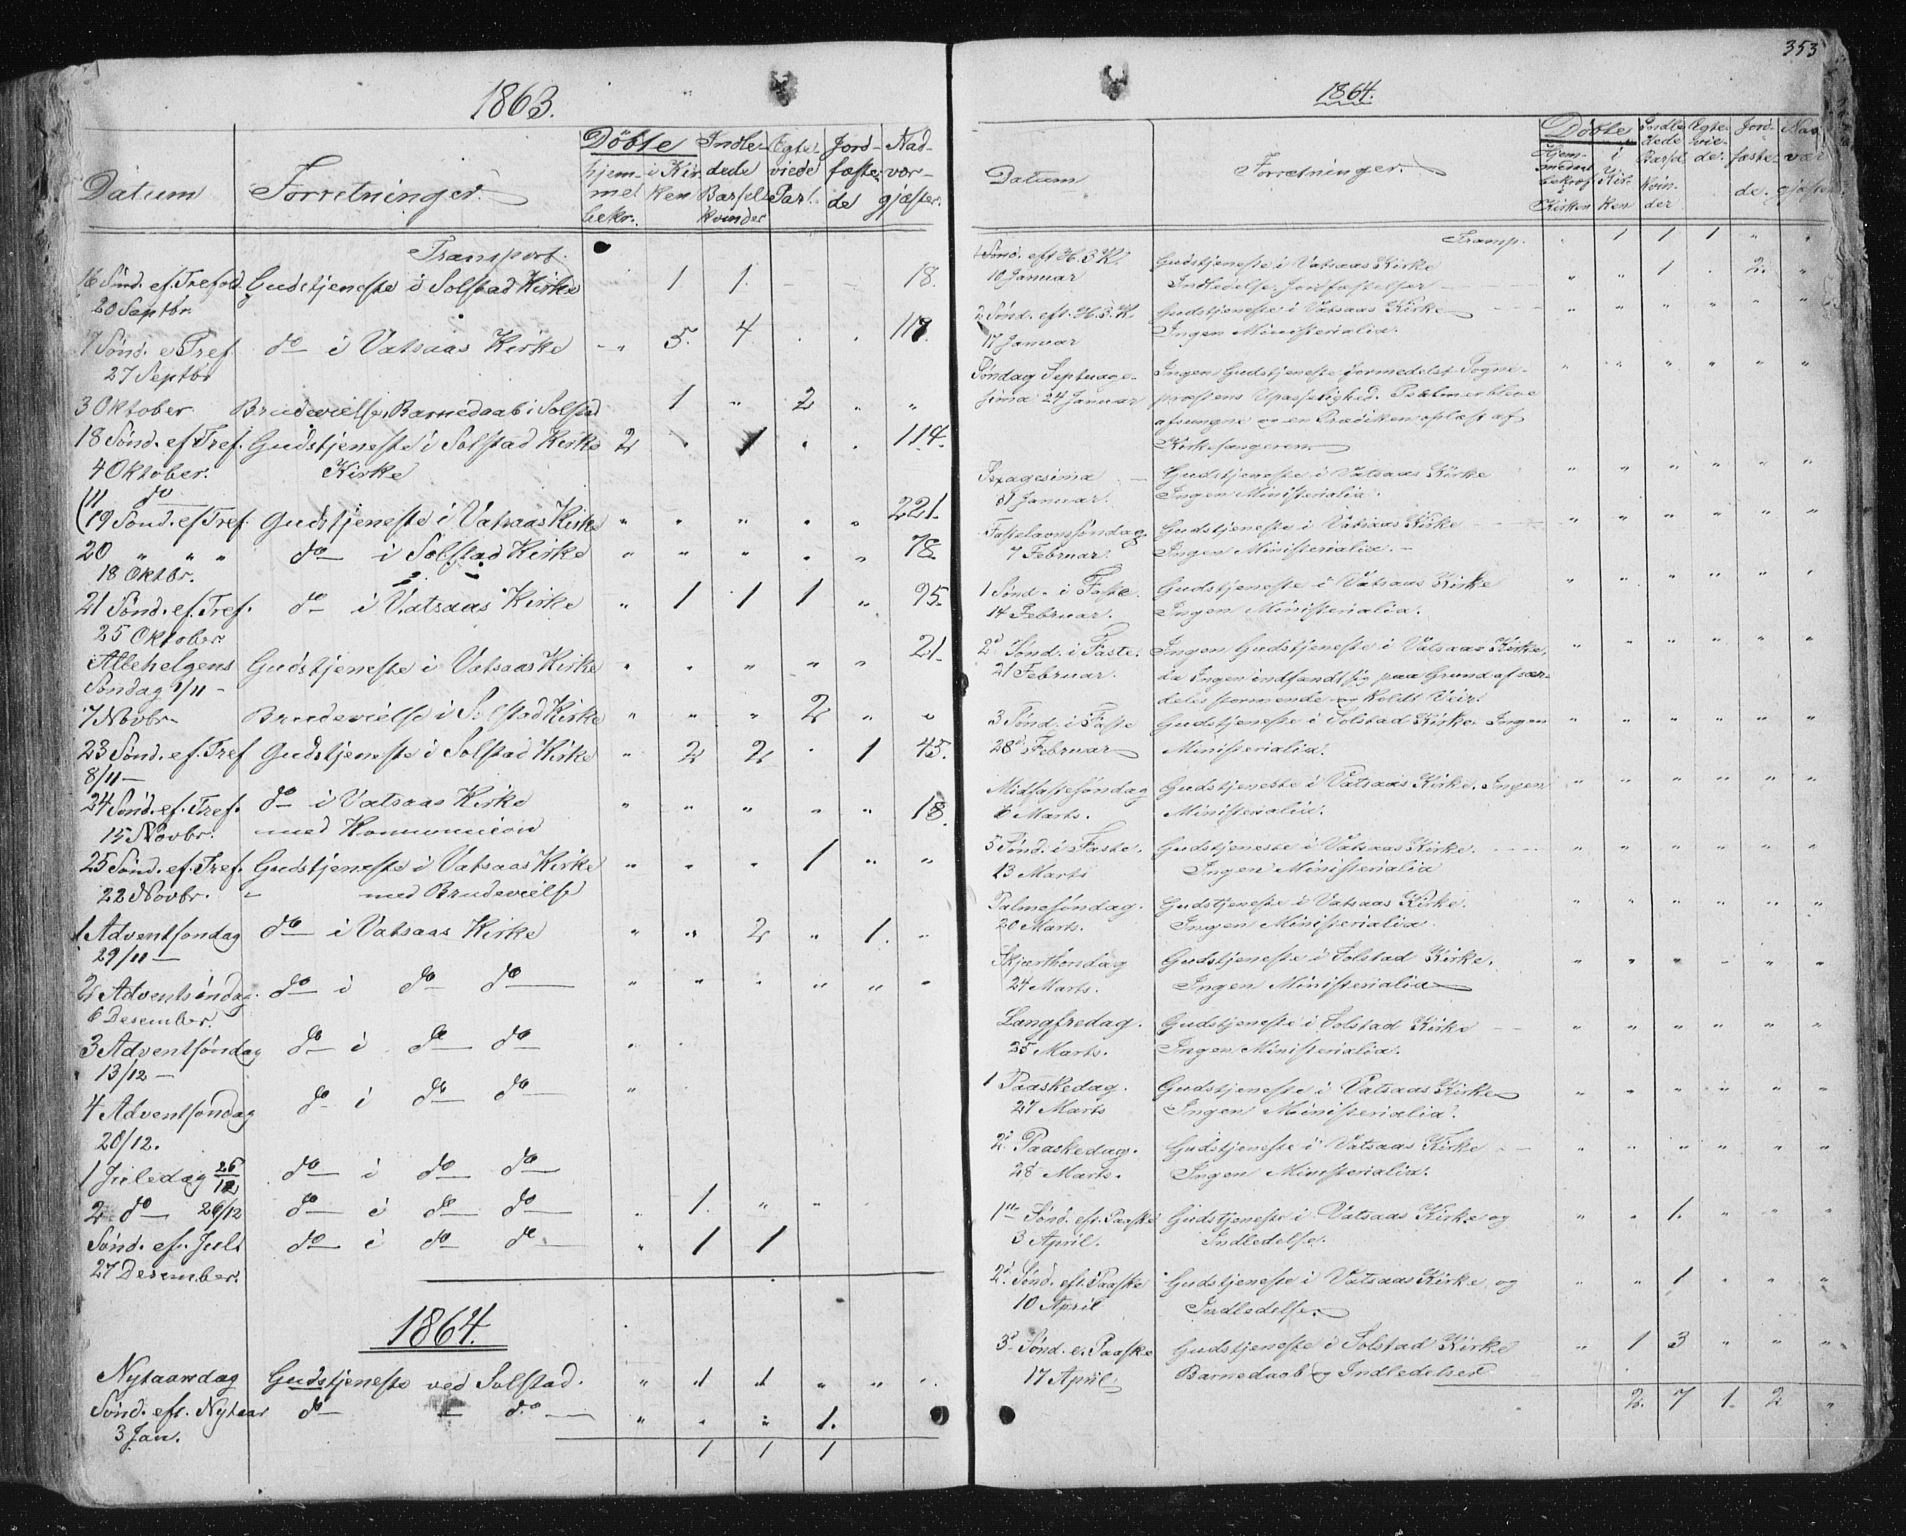 1863.
Datum Forretninger. Döbte Indle- Egte- Jord- Nad-
hjem- i Kir dede viede fæste- vor-
met ken Barsel- Par. de gjæster.
bekr. kvinder
Transport.
16 Sönd. ef. Trefold Gudstjeneste i Solstad Kirke 1 1. 18.
20 Septbr.
17 Sönd. e. Tref. do i Vatsaas Kirke " 5. 4 . . 117.
27 Septbr
3 Oktober Brudevielse, Barnedaab i Solstad 1 " 2 " "
18 Sönd. ef. Tref. Gudstjeneste i Solstad Kirke 2 . 1 . . 114.
4 Oktober. Kirke
11 do
19 Sönd. ef Tref. Gudstjeneste i Vatsaas Kirke " " " . " 221.
20 " " " do i Solstad Kirke " " " . " 78.
18 Oktbr.
21 Sönd. ef. Tref. do i Vatsaas Kirke " 1 1 1 " 95.
25 Oktober
Allehelgens Gudstjeneste i Vatsaas Kirke " " " " " 21.
Söndag 1/11 -
7 Novbr. Brudevielse i Solstad Kirke " " " 2 " "
23 Sönd. ef. Tref Gudstjeneste i Solstad Kirke " 2 2 . 1 45.
8/11 -
24 Sönd. ef. Tref. do i Vatsaas Kirke " " " " " 18.
15 Novbr. med Kommunion
25 Sönd. ef. Tref. Gudstjeneste i Vatsaas Kirke " " " 1 " "
22 Novbr. med Brudevielse
1 Adventsöndag do i Vatsaas Kirke " " 2 " 1. "
29/11 -
2 Adventsöndag. do i do do " " " " " "
6 Desember.
3 Adventsöndag do i do do " "
13/12 -
4 Adventsöndag do i do do "
20/12.
1 Juledag 26/12 do i do do
2 do 26/12 do i do do " 1. " " "
Sönd. ef. Jul do i do do " 1 1
27 Desember.
1864.
Nytaarsdag Gudstjeneste ved Solstad. " 1 1 " " "
Sönd. eft. Nytaar do - do " " " 1.
3 Jan.
1 1 1
353
1864.
Datum Forretninger. Döbte Indle- Egte- Jord- Nad
Hjem- i dede vie- fæste- vær
medns Barsel de.
bekræf. Kir- kvin- de. gjæster
Kirken ken der
Transp. " 1 1 1 " "
1 Sönd. eft H. 3 K. Gudstjeneste i Vatsaas Kirke
10 Januar Indledelse, Jordfæstelser " " 1 . 2. "
2 Sönd. eft. H. 3. K. Gudstjeneste i Vatsaas Kirke " " " " " "
17 Januar Ingen Ministerialia.
Söndag Septuage- Ingen Gudstjeneste formedelst Sogne- " " " " " "
sima 24 Januar præstens Upasselighed. Psalmer bleve
afsungne og en Prædiken oplæst af
Kirkesangeren
Sexagesima Gudstjeneste i Vatsaas Kirke " " " " " "
31 Januar. Ingen Ministerialia.
Fastelavnssöndag Gudstjeneste i Vatsaas Kirke " " " " " "
7 Februar. Ingen Ministerialia.
1 Sönd. i Faste. Gudstjeneste i Vatsaas Kirke " " " " " "
14 Februar. Ingen Ministerialia.
2d Sönd. i Faste. Ingen Gudstjeneste i Vatsaas Kirke, " " " " " "
21 Februar. da Ingen indfandt sig paa Grund af sær-
deles stormende og Koldt Veir.
3 Sönd. i Faste Gudstjeneste i Solstad Kirke. Ingen " " " " " "
28d Februar Ministerialia.
Midfastesöndag Gudstjeneste i Vatsaas Kirke. Ingen " " " " " "
6 Marts. Ministerialia.
5 Sönd. i Faste. Gudstjeneste i Vatsaas Kirke. " " " " " "
13 Marts Ingen Ministerialia
Palmesöndag. Gudstjeneste i Vatsaas Kirke. " " " " " "
20 Marts. Ingen Ministerialia.
Skjærthorsdag Gudstjeneste i Solstad Kirke. " " " " " "
24 Marts. Ingen Ministerialia
Langfredag. Gudstjeneste i Solstad Kirke " " " " " "
25 Marts. Ingen Ministerialia.
1 Paaskedag. Gudstjeneste i Vatsaas Kirke " " " " " "
27 Marts Ingen Ministerialia.
2d Paaskedag. Gudstjeneste i Vatsaas Kirke " " " " " "
28 Marts. Ingen Ministerialia.
1ste Sönd. eft. Paaske Gudstjeneste i Vatsaas Kirke og " " 1. " " "
3 April. Indledelse.
2d Sönd. eft. Paaske Gudstjeneste i Vatsaas Kirke, og " " 1 " " "
10 April Indledelse
3d Sönd. e. Paaske Gudstjeneste i Solstad Kirke " 1 3 " " "
17 April Barnedaab og Indledelser
2. 7 1. 2 "